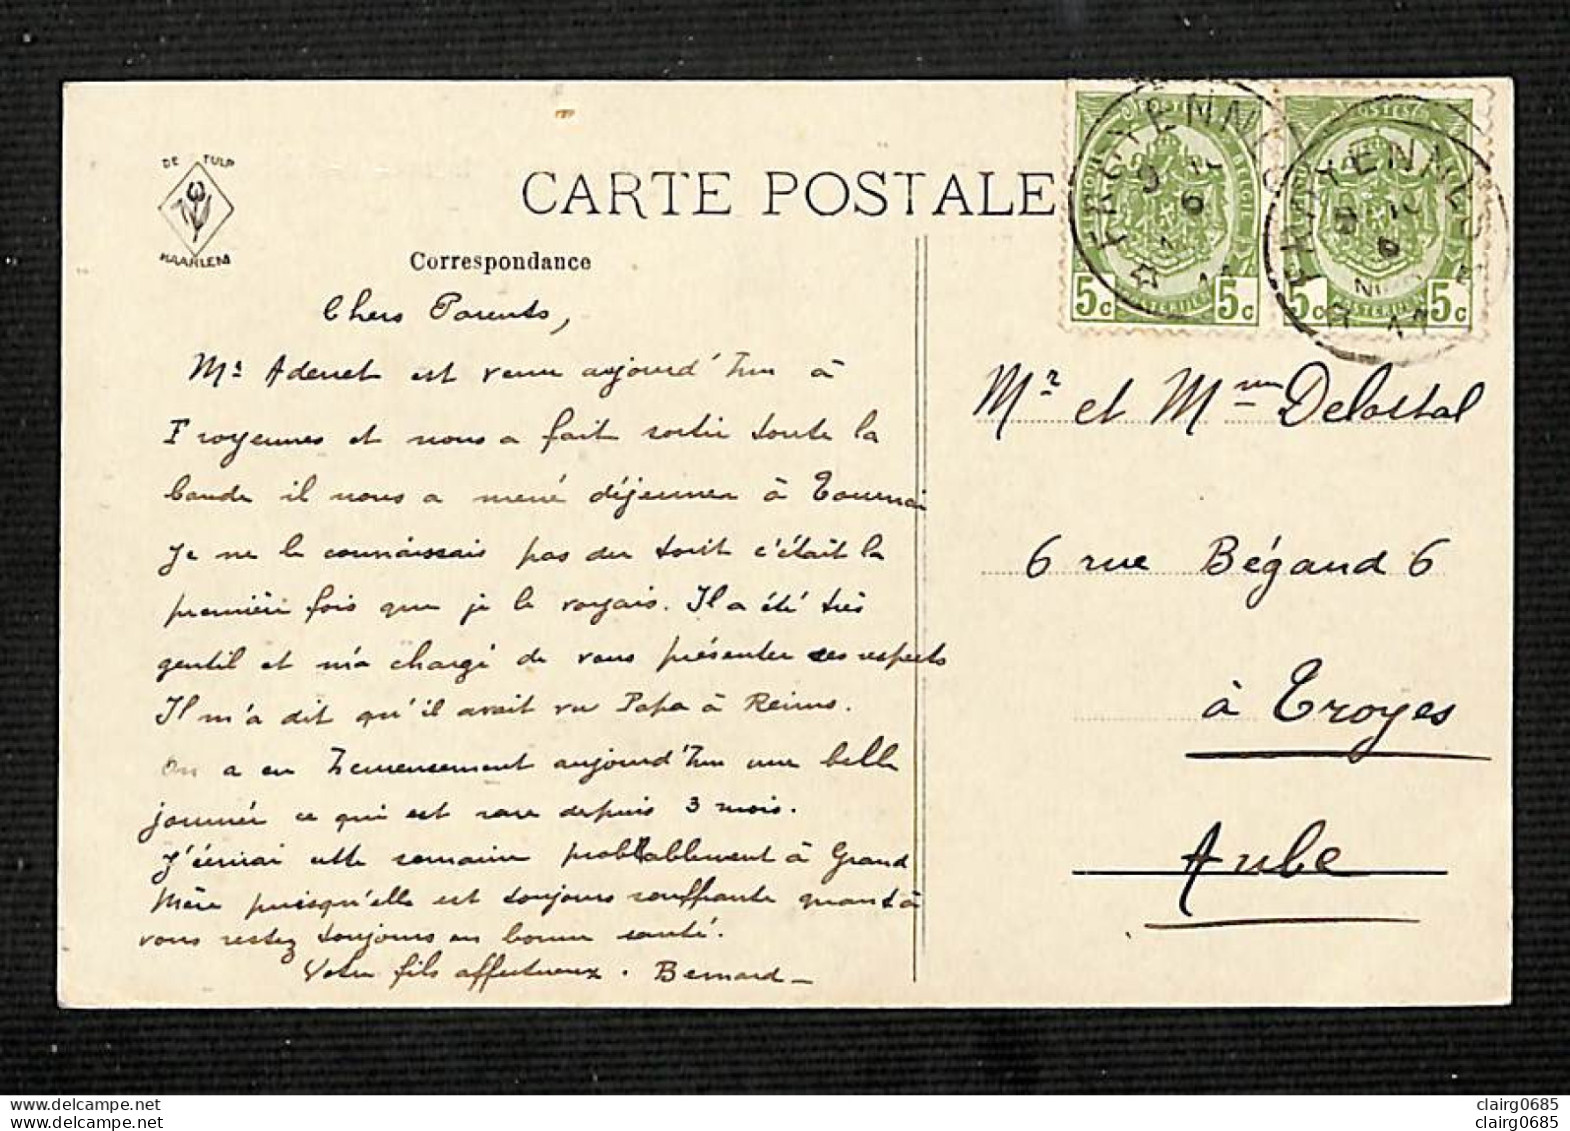 DE TULP
HAARLEM
CARTE POSTALE
Correspondance
Chers Parents,
Mr Adenet est venu aujourd'hui à
Froyennes et nous a fait sortir toute la
bande il nous a mené déjeuner à Tournai
Je ne le connaissais pas du tout c'était la
première fois que je le voyais. Il a été très
gentil et m'a chargé de vous présenter ses respects
Il m'a dit qu'il avait vu Papa à Reims.
On a eu heureusement aujourd'hui une belle
journée ce qui est rare depuis 3 mois.
J'écrirai cette semaine probablement à Grand
Mère puisqu'elle est toujours souffrante quant à
vous restez toujours en bonne santé.
Votre fils affectueux. Bernard
POSTES
BELGIË
5c 5c
FROYENNES
9
6
11
POSTES
5c 5c
FROYENNES
9
6
11
Mr et Mme Delostal
6 rue Bégand 6
à Troyes
Aube
www.delcampe.net
www.delcampe.net
clairg0685
clairg0685